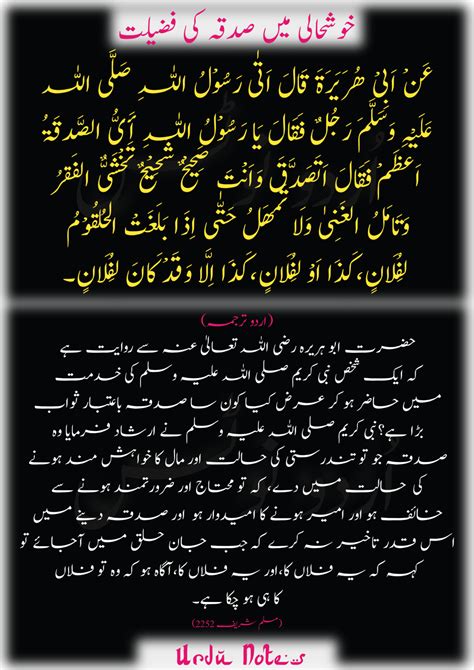 خوشحالی میں صدقہ کی فضیلت
عَنْ اَبِیْ هُرَیْرَةَ قَالَ اَتٰی رَسُوْلُ اللہِ صَلَّی اللہ
عَلَیْهِ وَسَلَّمَ رَجُلٌ فَقَالَ یَا رَسُوْلُ اللہِ اَیُّ الصَّدَقَةُ
اَعْظَمُ فَقَالَ اَتَصَدَّقَ وَاَنْتَ صَحِیْحٌ شَحِیْحٌ تَخْشَیْ الفَقْرُ
وَتَامُلُ الغَنِیْ وَلَا تَمْهَلُ حَتّٰی اِذَا بَلَغَتْ الحُلْقُوْمُ
لِفُلَانٍ، کَذَا اَوْ لِفُلَانٍ، کَذَا اِلَّا وَقَدْ کَانَ لِفُلَانٍ۔
(اردو ترجمہ)
حضرت ابو ہریرہ رضی اللہ تعالیٰ عنہ سے روایت ہے
کہ ایک شخص نبی کریم صلی اللہ علیہ وسلم کی خدمت
میں حاضر ہو کر عرض کیا کون سا صدقہ باعتبار ثواب
بڑا ہے؟نبی کریم صلی اللہ علیہ وسلم نے ارشاد فرمایا وہ
صدقہ جو تو تندرستی کی حالت اور مال کا خواہش مند ہونے
کی حالت میں دے، کہ تو محتاج اور ضرورتمند ہونے سے
خائف ہو اور امیر ہونے کا امیدوار ہو اور صدقہ دینے میں
اس قدر تاخیر نہ کرے کہ جب جان حلق میں آجائے تو
کہہ کہ یہ فلاں کا، اور یہ فلاں کا،آگاہ ہو کہ وہ تو فلاں
کا ہی ہو چکا ہے۔
(مسلم شریف 2252)
Urdu Notes